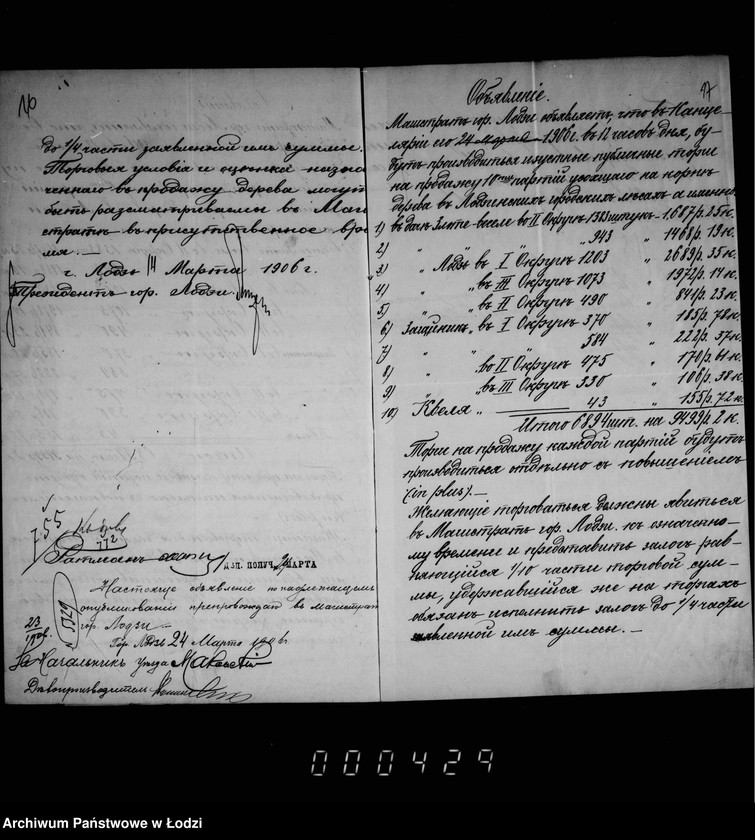 16
до 1/4 части заявленной имъ суммы.
Торговыя условія и оценка назна-
ченнаго въ продажу дерева могутъ
быть разсматриваемы въ Маги-
стратѣ въ присутственное вре-
мя. —
г. Лодзь Марта 1906 г.
Президентъ гор. Лодзи
755
772
Ратманъ
ДЗ. ПОЛУЧ. МАРТА
Настоящее объявленіе по надлежащемъ
опубликованіи препровождаю въ Магистратъ
гор. Лодзи.
23
1729
Гор. Лодзь 24 Марта 1906 г.
За Начальникъ Уѣзда
Дѣлопроизводитель
17
Объявленіе.
Магистратъ гор. Лодзи объявляетъ, что въ Канце-
ляріи его 24 Марта 1906 г. въ 12 часовъ дня, бу-
дутъ производиться изустные публичные торги
на продажу 10 партій усохшаго на корнѣ
дерева въ Лодзинскихъ городскихъ лѣсахъ а именно:
1) въ дач. Злоте-весле въ II Округѣ 1385 штукъ - 1687 р. 25 к.
2) " " 943 " 1468 р. 19 к.
3) " Лодзь въ I Округѣ 1203 " 2689 р. 35 к.
4) " " въ III Округѣ 1073 " 1972 р. 14 к.
5) " " въ II Округѣ 490 " 841 р. 23 к.
6) Загайникъ " въ I Округѣ 370 " 185 р. 78 к.
7) " " " 584 " 222 р. 37 к.
8) " " во II Округѣ 475 " 170 р. 61 к.
9) " " въ III Округѣ 330 " 106 р. 38 к.
10) " 43 " 155 р. 72 к.
Итого 6894 шт. на 9499 р. 2 к.
Торги на продажу каждой партій будутъ
производиться отдѣльно съ повышеніемъ
(in plus). —
Желающіе торговаться должны явиться
въ Магистратъ гор. Лодзи къ означенно-
му времени и представить залогъ рав-
няющійся 1/10 части торговой сум-
мы, удержавшійся же на торгахъ
обязанъ исполнить залогъ до 1/4 части
заявленной имъ суммы. —
000429
Archiwum Państwowe w Łodzi